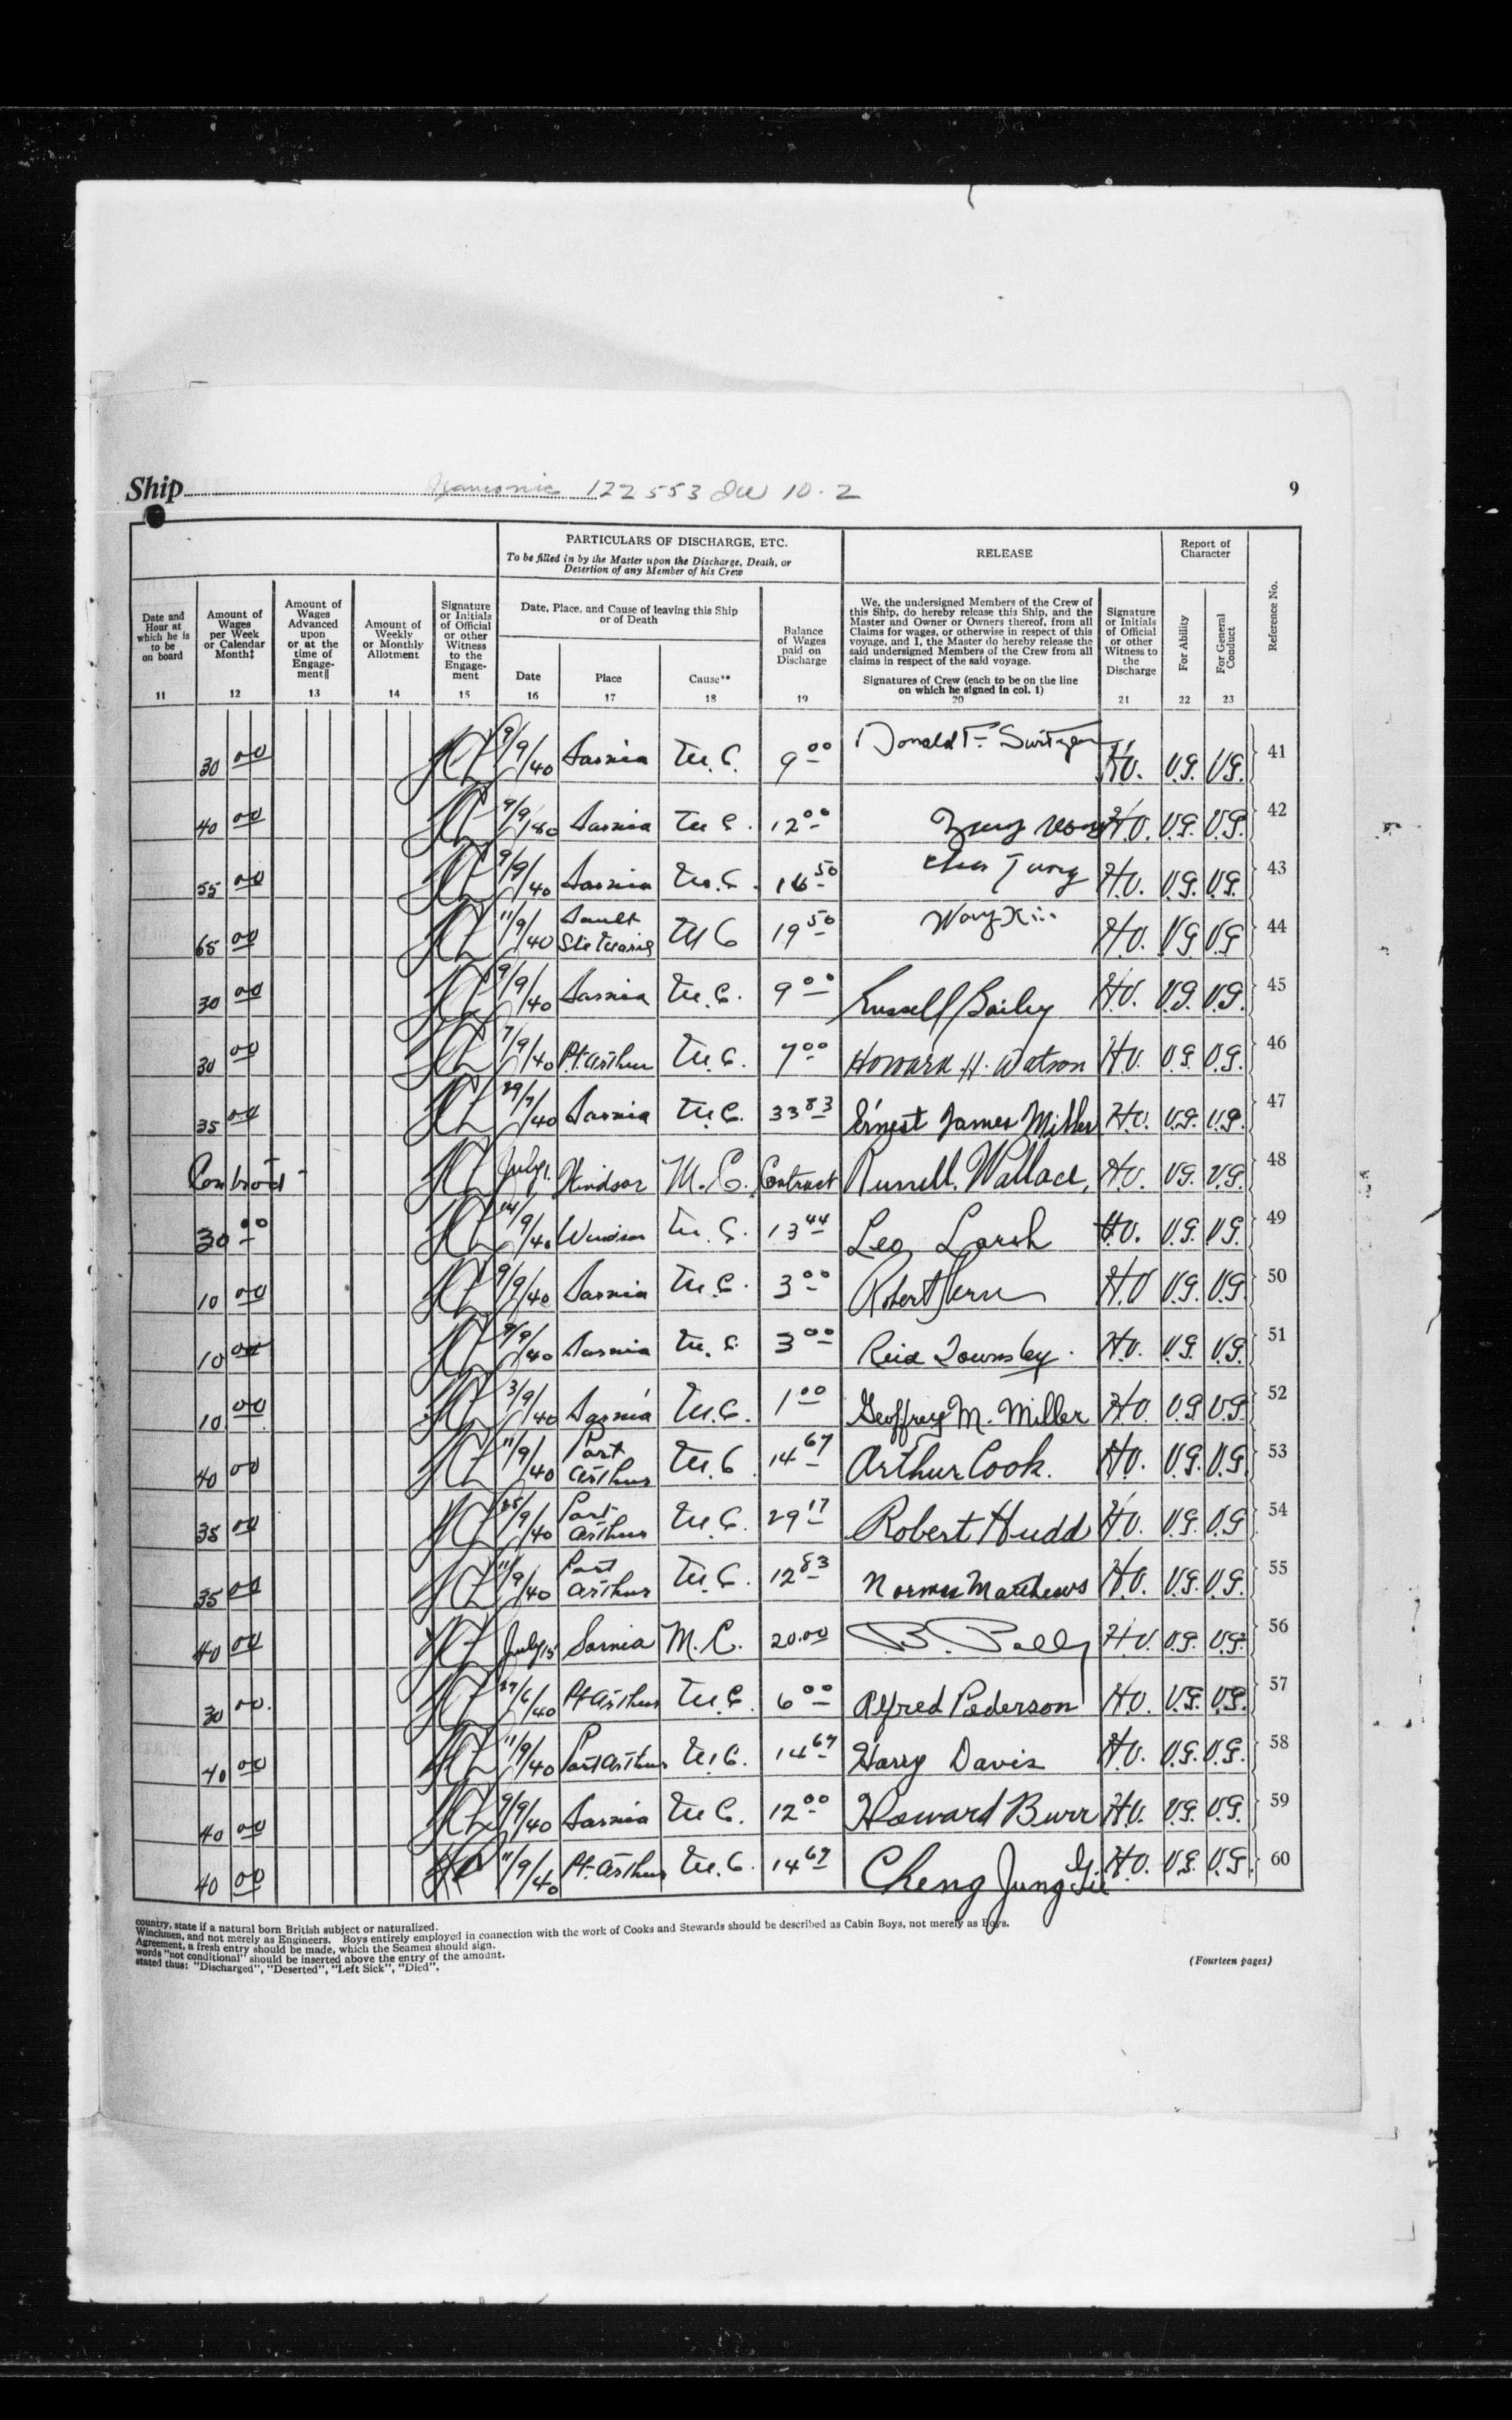 Ship 122553 10.2
9
PARTICULARS OF DISCHARGE, ETC.
To be filled in by the Master upon the Discharge, Death, or
Desertion of any Member of his Crew
RELEASE
Report of
Character
Date and
Hour at
which he is
to be
on board
11
Amount of
Wages
per Week
or Calendar
Month‡
12
Amount of
Wages
Advanced
upon
or at the
time of
Engage-
ment‖
13
Amount of
Weekly
or Monthly
Allotment
14
Signature
or Initials
of Official
or other
Witness
to the
Engage-
ment
15
Date, Place, and Cause of leaving this Ship
or of Death
Date
16
Place
17
Cause**
18
Balance
of Wages
paid on
Discharge
19
We, the undersigned Members of the Crew of
this Ship, do hereby release this Ship, and the
Master and Owner or Owners thereof, from all
Claims for wages, or otherwise in respect of this
voyage, and I, the Master do hereby release the
said undersigned Members of the Crew from all
claims in respect of the said voyage.
Signatures of Crew (each to be on the line
on which he signed in col. 1)
20
Signature
or Initials
of Official
or other
Witness to
the
Discharge
21
For Ability
22
For General
Conduct
23
Reference No.
30 00 9/9/40 Sarnia M.C. 9 00 Donald F. Switzer H.O. V.G. V.G. 41
40 00 9/9/40 Sarnia M.C. 12 00 H.O. V.G. V.G. 42
55 00 9/9/40 Sarnia M.C. 16 50 Jung H.O. V.G. V.G. 43
65 00 11/9/40 Sault Ste Marie M C 19 50 Wong H.O. V.G. V.G. 44
30 00 9/9/40 Sarnia M.C. 9 00 Russell Bailey H.O. V.G. V.G. 45
30 00 7/9/40 Pt. Arthur M.C. 7 00 Howard H. Watson H.O. V.G. V.G. 46
35 00 29/7/40 Sarnia M.C. 33 83 Ernest James Miller H.O. V.G. V.G. 47
Contract July 1. Windsor M.C. Contract Russell Wallace, H.O. V.G. V.G. 48
30 00 14/9/40 Windsor M.C. 13 44 Leo Larsh H.O. V.G. V.G. 49
10 00 9/9/40 Sarnia M.C. 3 00 Robert H.O V.G. V.G. 50
10 00 9/9/40 Sarnia M.C. 3 00 Reid Townsley. H.O. V.G. V.G. 51
10 00 3/9/40 Sarnia M.C. 1 00 Geoffrey M. Miller H.O. V.G V.G 52
40 00 11/9/40 Port Arthur M.C 14 67 Arthur Cook. H.O. V.G. V.G 53
35 00 25/9/40 Port Arthur M.C. 29 17 Robert Hudd H.O. V.G. V.G 54
35 00 11/9/40 Port Arthur M.C. 12 83 Norman Matthews H.O. V.G. V.G. 55
40 00 July 15 Sarnia M.C. 20.00 B. H.O. V.G. V.G. 56
30 00. 27/6/40 Pt Arthur M.C 6 00 Alfred Pederson H.O. V.G. V.G. 57
40 00 11/9/40 Port Arthur M.C. 14 67 Harry Davis H.O. V.G. V.G. 58
40 00 9/9/40 Sarnia M C. 12 00 Howard Burr H.O. V.G. V.G. 59
40 00 11/9/40 Pt. Arthur M.C. 14 67 Cheng Jung H.O. V.G. V.G. 60
country, state if a natural born British subject or naturalized.
Winchmen, and not merely as Engineers. Boys entirely employed in connection with the work of Cooks and Stewards should be described as Cabin Boys, not merely as Boys.
Agreement, a fresh entry should be made, which the Seamen should sign.
words "not conditional" should be inserted above the entry of the amount.
stated thus: "Discharged", "Deserted", "Left Sick", "Died".
(Fourteen pages)